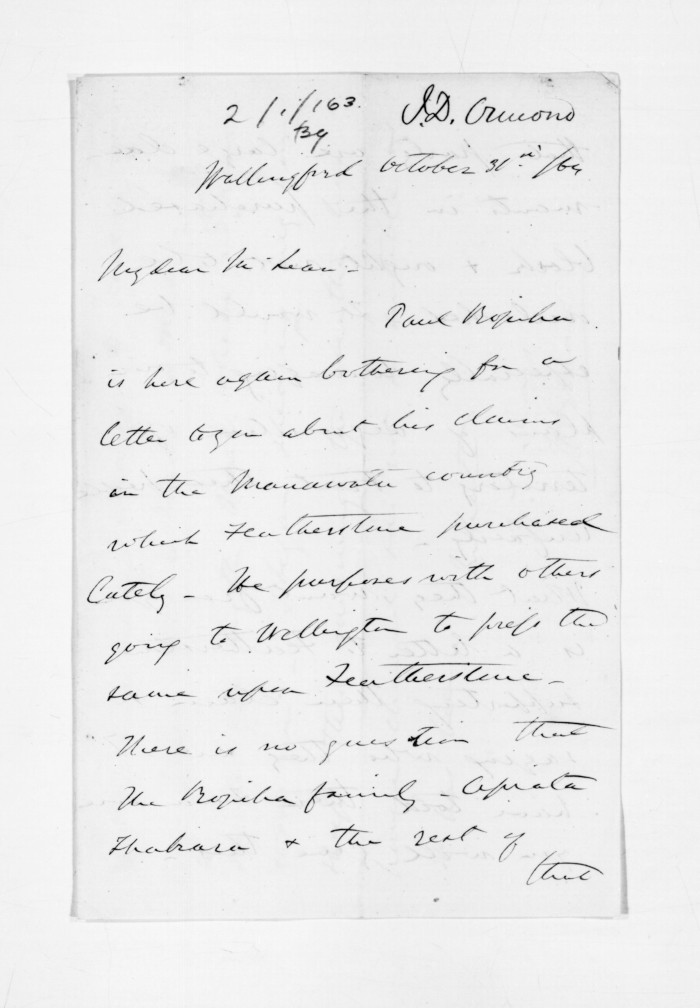 2/1/163.
39
J.D. Ormond
Wallingford October 31st /64
My dear McLean -
Paul Ropiha
is here again bothering for a
letter to you about his claims
in the Manawatu country
which Featherstone purchased
lately - He purposes with others
going to Wellington to press the
same upon Featherstone -
There is no question that
the Ropiha family -
& the rest of
that